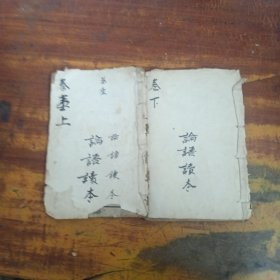 卷下
論語讀本
論語讀本
論語讀本
卷上